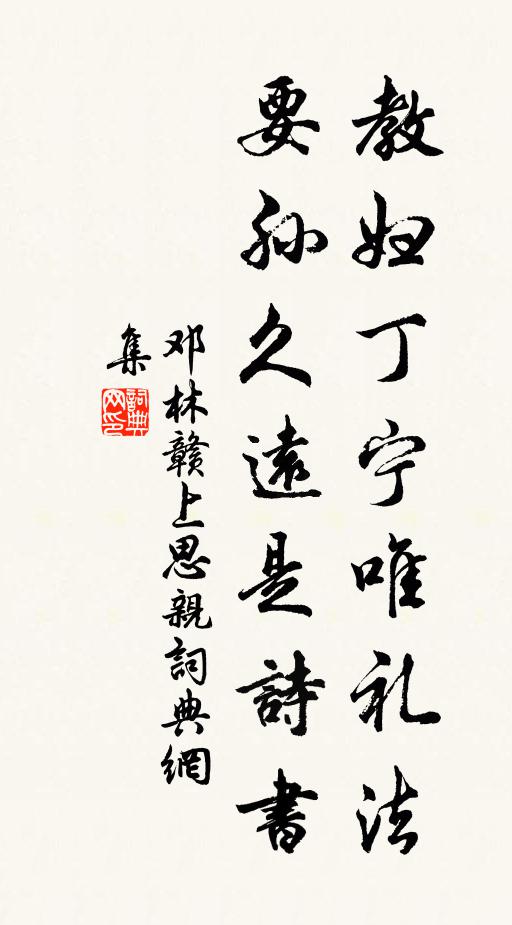 教妇丁宁唯礼法
要孙久遠是詩書
邓林赣上思親詞典網
集
詞典
网印